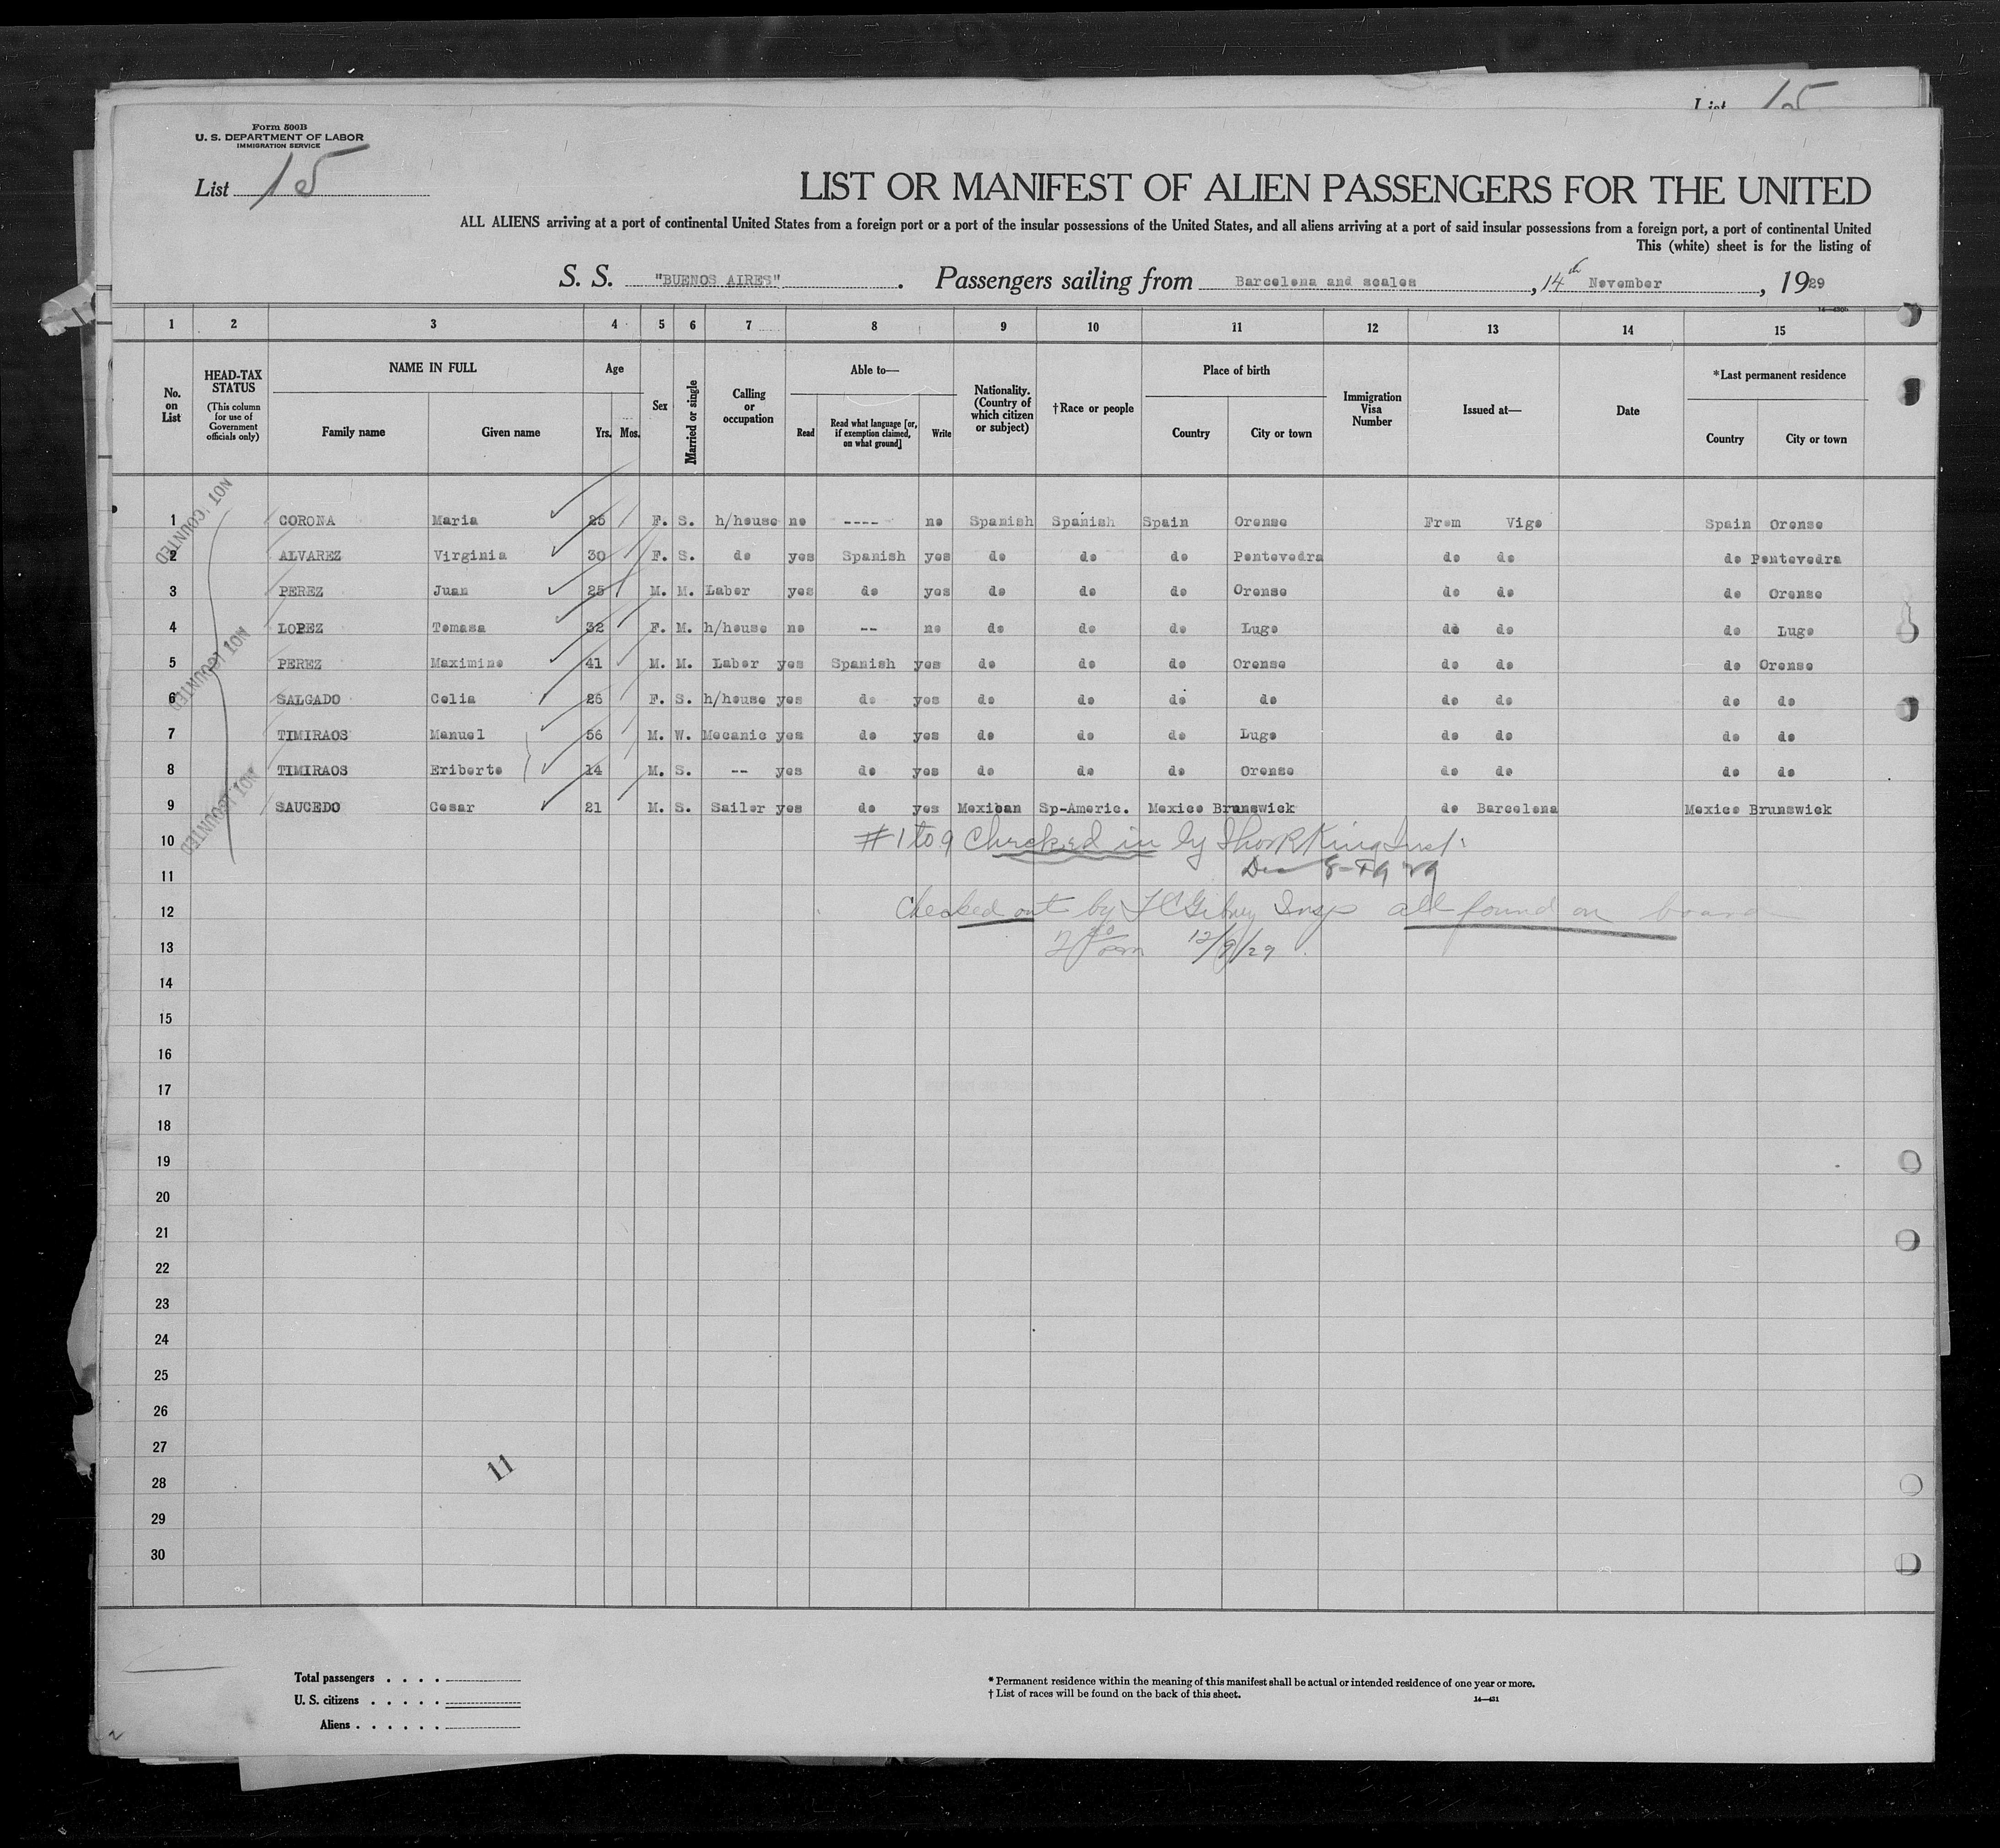 List 15
Form 500B
U. S. DEPARTMENT OF LABOR
IMMIGRATION SERVICE
List 15
LIST OR MANIFEST OF ALIEN PASSENGERS FOR THE UNITED
ALL ALIENS arriving at a port of continental United States from a foreign port or a port of the insular possessions of the United States, and all aliens arriving at a port of said insular possessions from a foreign port, a port of continental United
This (white) sheet is for the listing of
S. S. "BUENOS AIRES". Passengers sailing from Barcelona and scales, 14th November, 1929
1 2 3 4 5 6 7 8 9 10 11 12 13 14 15
No. on List
HEAD-TAX STATUS
(This column for use of Government officials only)
NAME IN FULL
Family name Given name
Age
Yrs. Mos.
Sex
Married or single
Calling or occupation
Able to—
Read Read what language [or, if exemption claimed, on what ground] Write
Nationality. (Country of which citizen or subject)
†Race or people
Place of birth
Country City or town
Immigration Visa Number
Issued at—
Date
*Last permanent residence
Country City or town
1 CORONA Maria 25 F. S. h/house no ---- no Spanish Spanish Spain Orense From Vigo Spain Orense
2 ALVAREZ Virginia 30 F. S. do yes Spanish yes do do do Pontevedra do do do Pontevedra
3 PEREZ Juan 25 M. M. Labor yes do yes do do do Orense do do do Orense
4 LOPEZ Tomasa 32 F. M. h/house no -- no do do do Lugo do do do Lugo
5 PEREZ Maximino 41 M. M. Labor yes Spanish yes do do do Orense do do do Orense
6 SALGADO Celia 26 F. S. h/house yes do yes do do do do do do do do
7 TIMIRAOS Manuel 56 M. W. Mecanic yes do yes do do do Lugo do do do do
8 TIMIRAOS Eriberto 14 M. S. -- yes do yes do do do Orense do do do do
9 SAUCEDO Cesar 21 M. S. Sailor yes do yes Mexican Sp-Americ. Mexico Brunswick do Barcelona Mexico Brunswick
NOT COUNTED
NOT COUNTED
NOT COUNTED
10 #1 to 9 Checked in by King Insp.
11 Dec 8
12 Checked out by Insp all found on board
13 12/9/29
14
15
16
17
18
19
20
21
22
23
24
25
26
27
11
28
29
30
Total passengers . . . .
U. S. citizens . . . . .
Aliens . . . . . .
* Permanent residence within the meaning of this manifest shall be actual or intended residence of one year or more.
† List of races will be found on the back of this sheet.
14—431